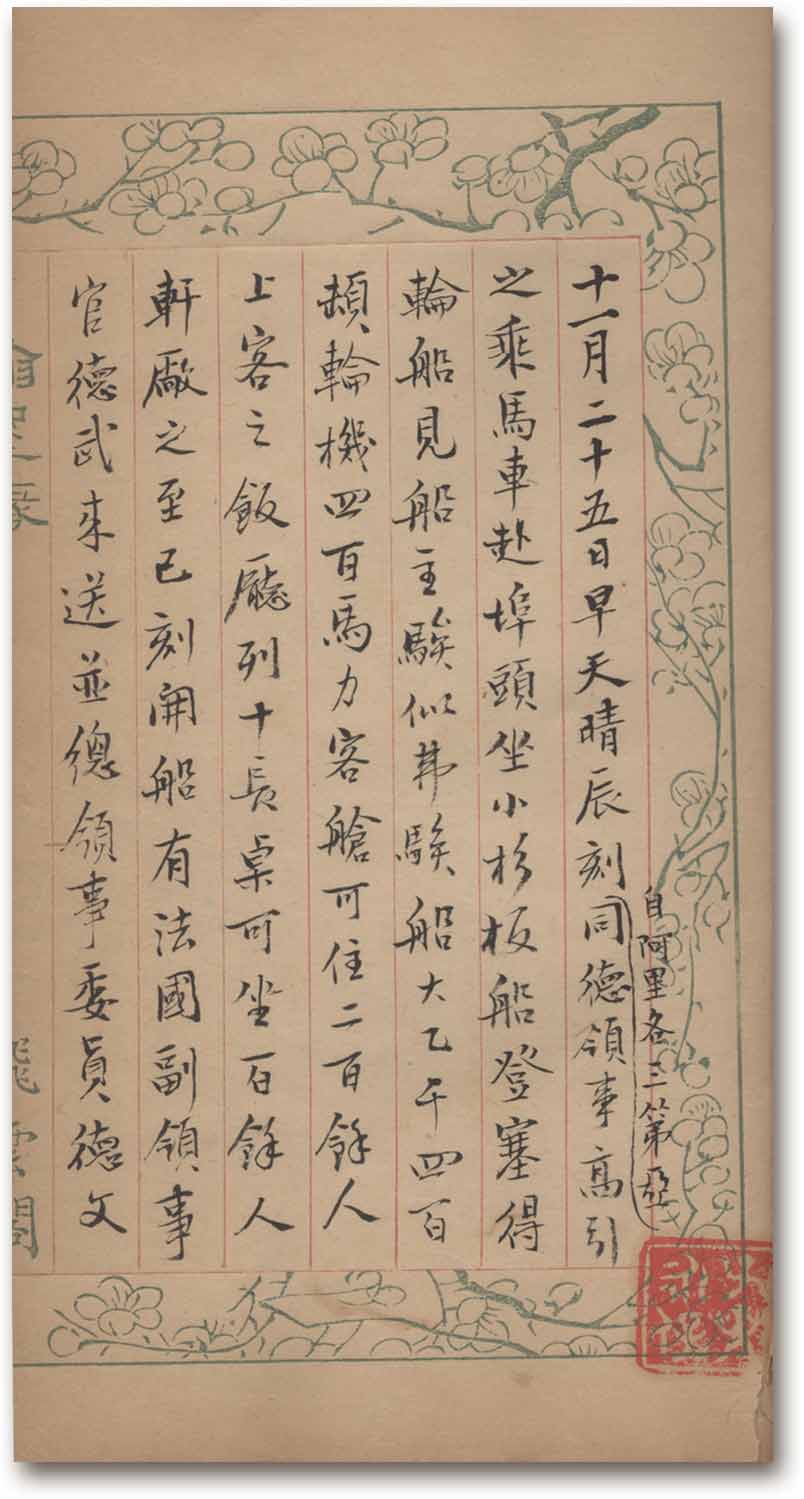 自阿里各三第亞
十一月二十五日早天晴辰刻同德領事高引
之乘馬車赴埠頭坐小杉板船登塞得
輪船見船主騃似弗騃船大乙千四百
頓輪機四百馬力客艙可住二百餘人
上客之飯廳列十長桌可坐百餘人
軒厰之至已刻開船有法國副領事
官德武來送並總領事委員德文